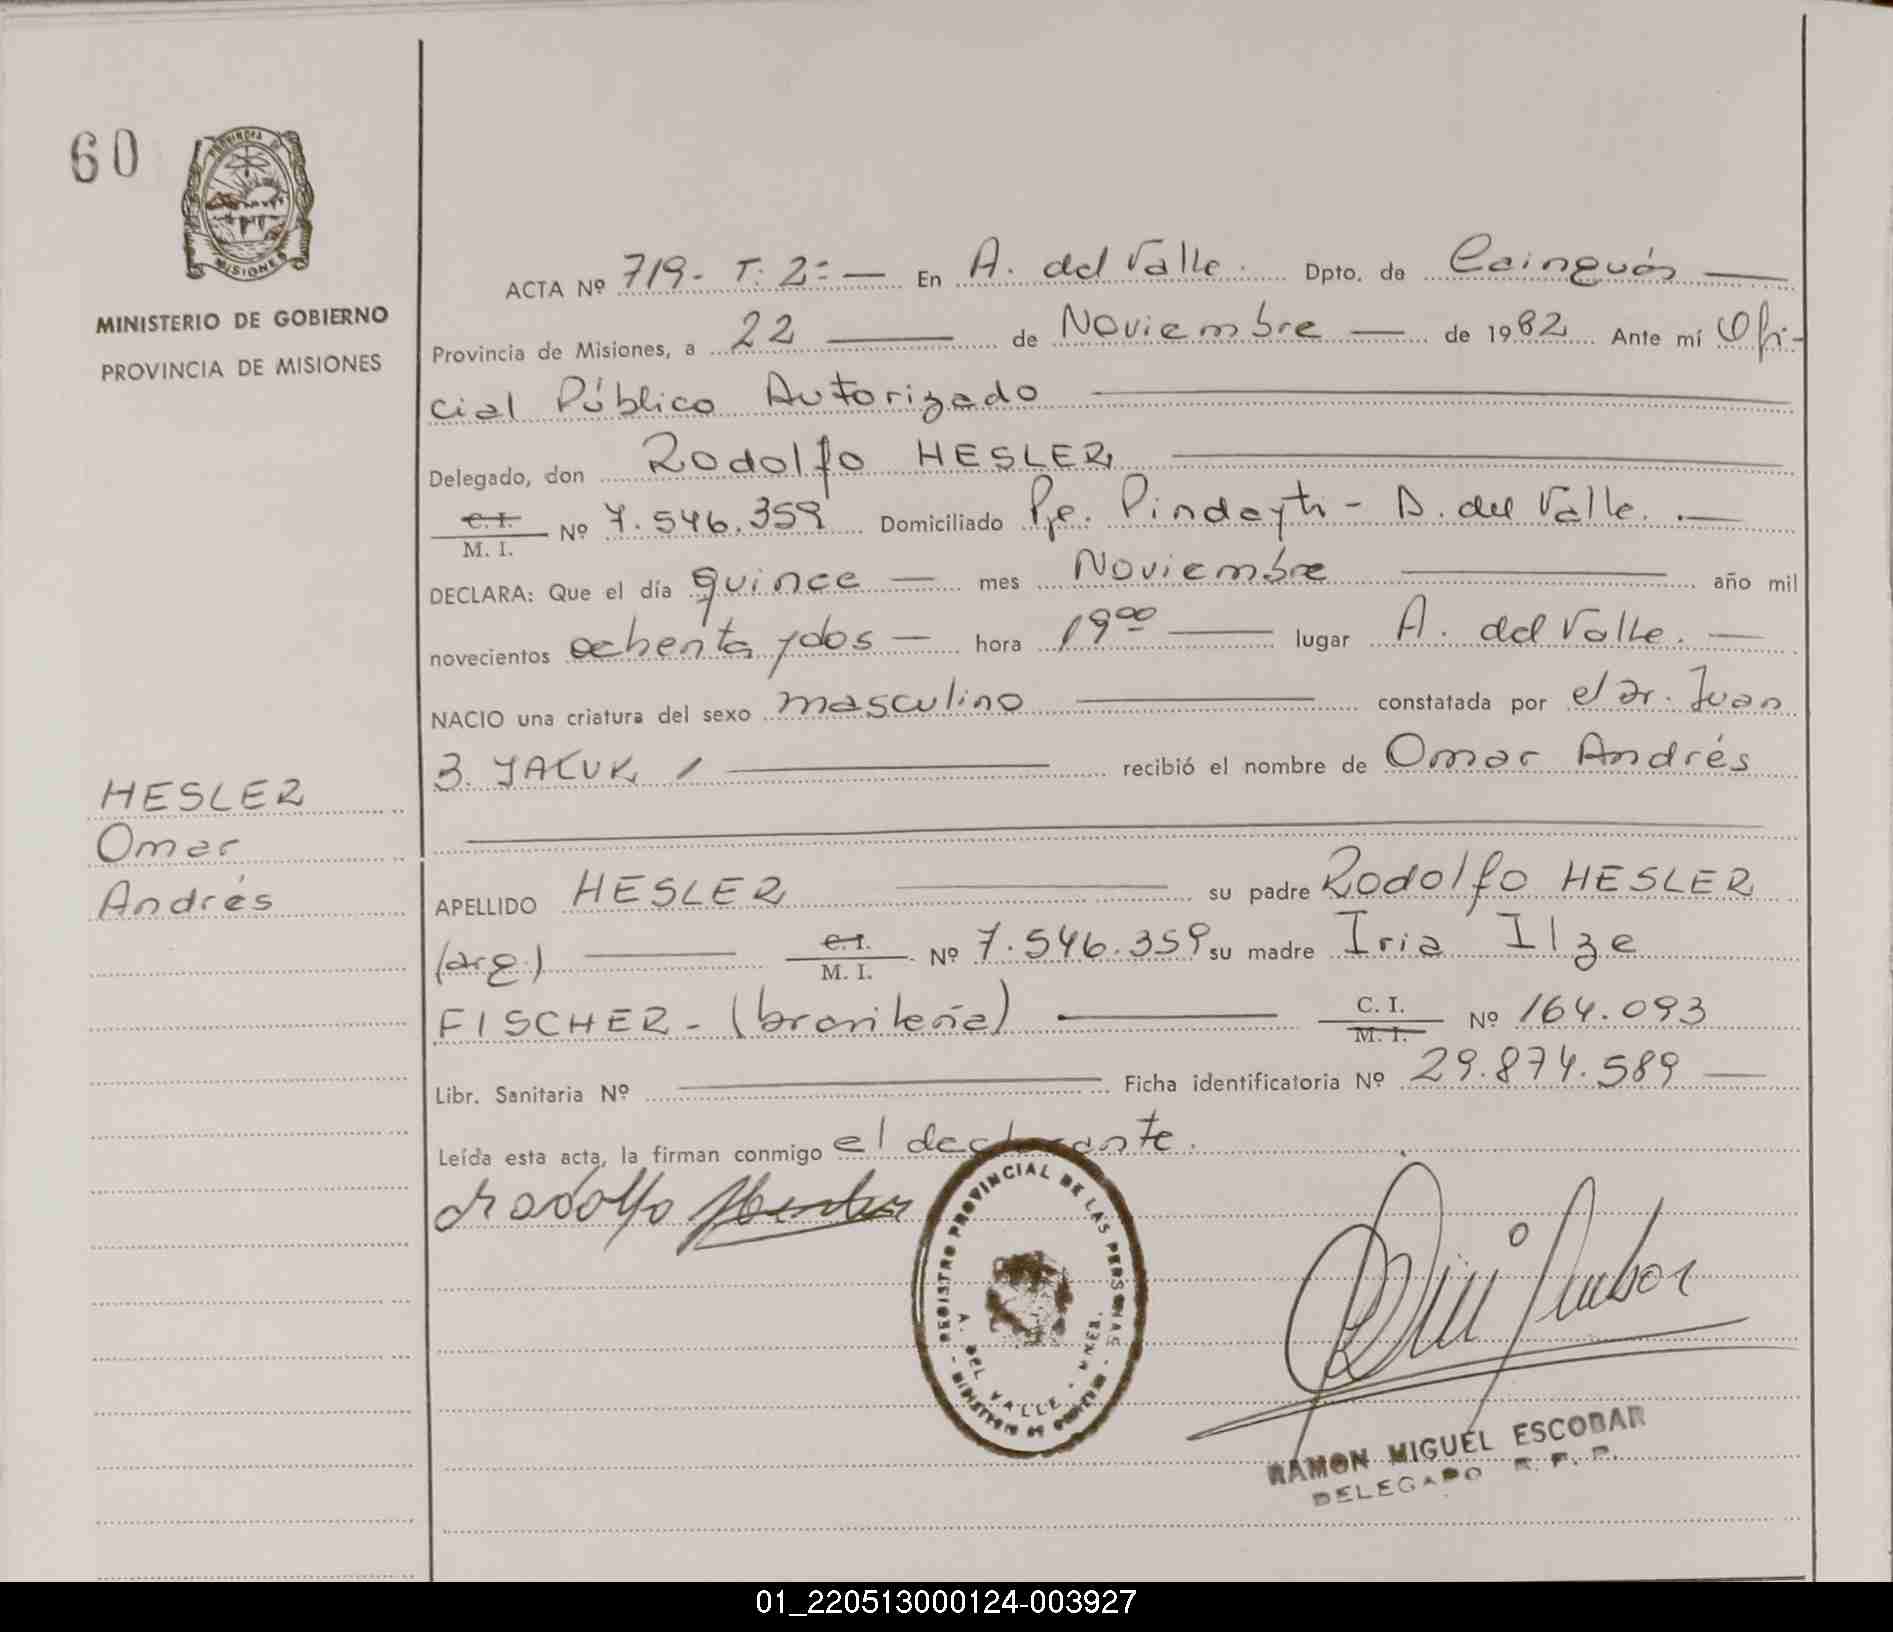 60
PROVINCIA DE
MISIONES
MINISTERIO DE GOBIERNO
PROVINCIA DE MISIONES
ACTA Nº 719 - T: 2º — En A. del Valle. Dpto. de Cainguás —
Provincia de Misiones, a 22 — de Noviembre — de 1982 Ante mí Ofi-
cial Público Autorizado —
Delegado, don Rodolfo HESLER —
C. I. / M. I. Nº 7.546.359 Domiciliado Pje. Pindayti - A. del Valle. —
DECLARA: Que el día quince — mes Noviembre — año mil
novecientos ochenta y dos — hora 19 00 — lugar A. del Valle. —
NACIO una criatura del sexo masculino — constatada por el Dr. Juan
B. YACUK / — recibió el nombre de Omar Andrés
HESLER
Omar
Andrés
APELLIDO HESLER — su padre Rodolfo HESLER
(arg) — C. I. / M. I. Nº 7.546.359 su madre Iria Ilze
FISCHER - (brasileña) — C. I. / M. I. Nº 164.093
Libr. Sanitaria Nº — Ficha identificatoria Nº 29.874.589 —
Leída esta acta, la firman conmigo el declarante.
Rodolfo
REGISTRO PROVINCIAL DE LAS PERSONAS
A. DEL VALLE - MNES.
- MINISTERIO DE GOBIERNO -
RAMON MIGUEL ESCOBAR
DELEGADO R. P. P.
01_220513000124-003927